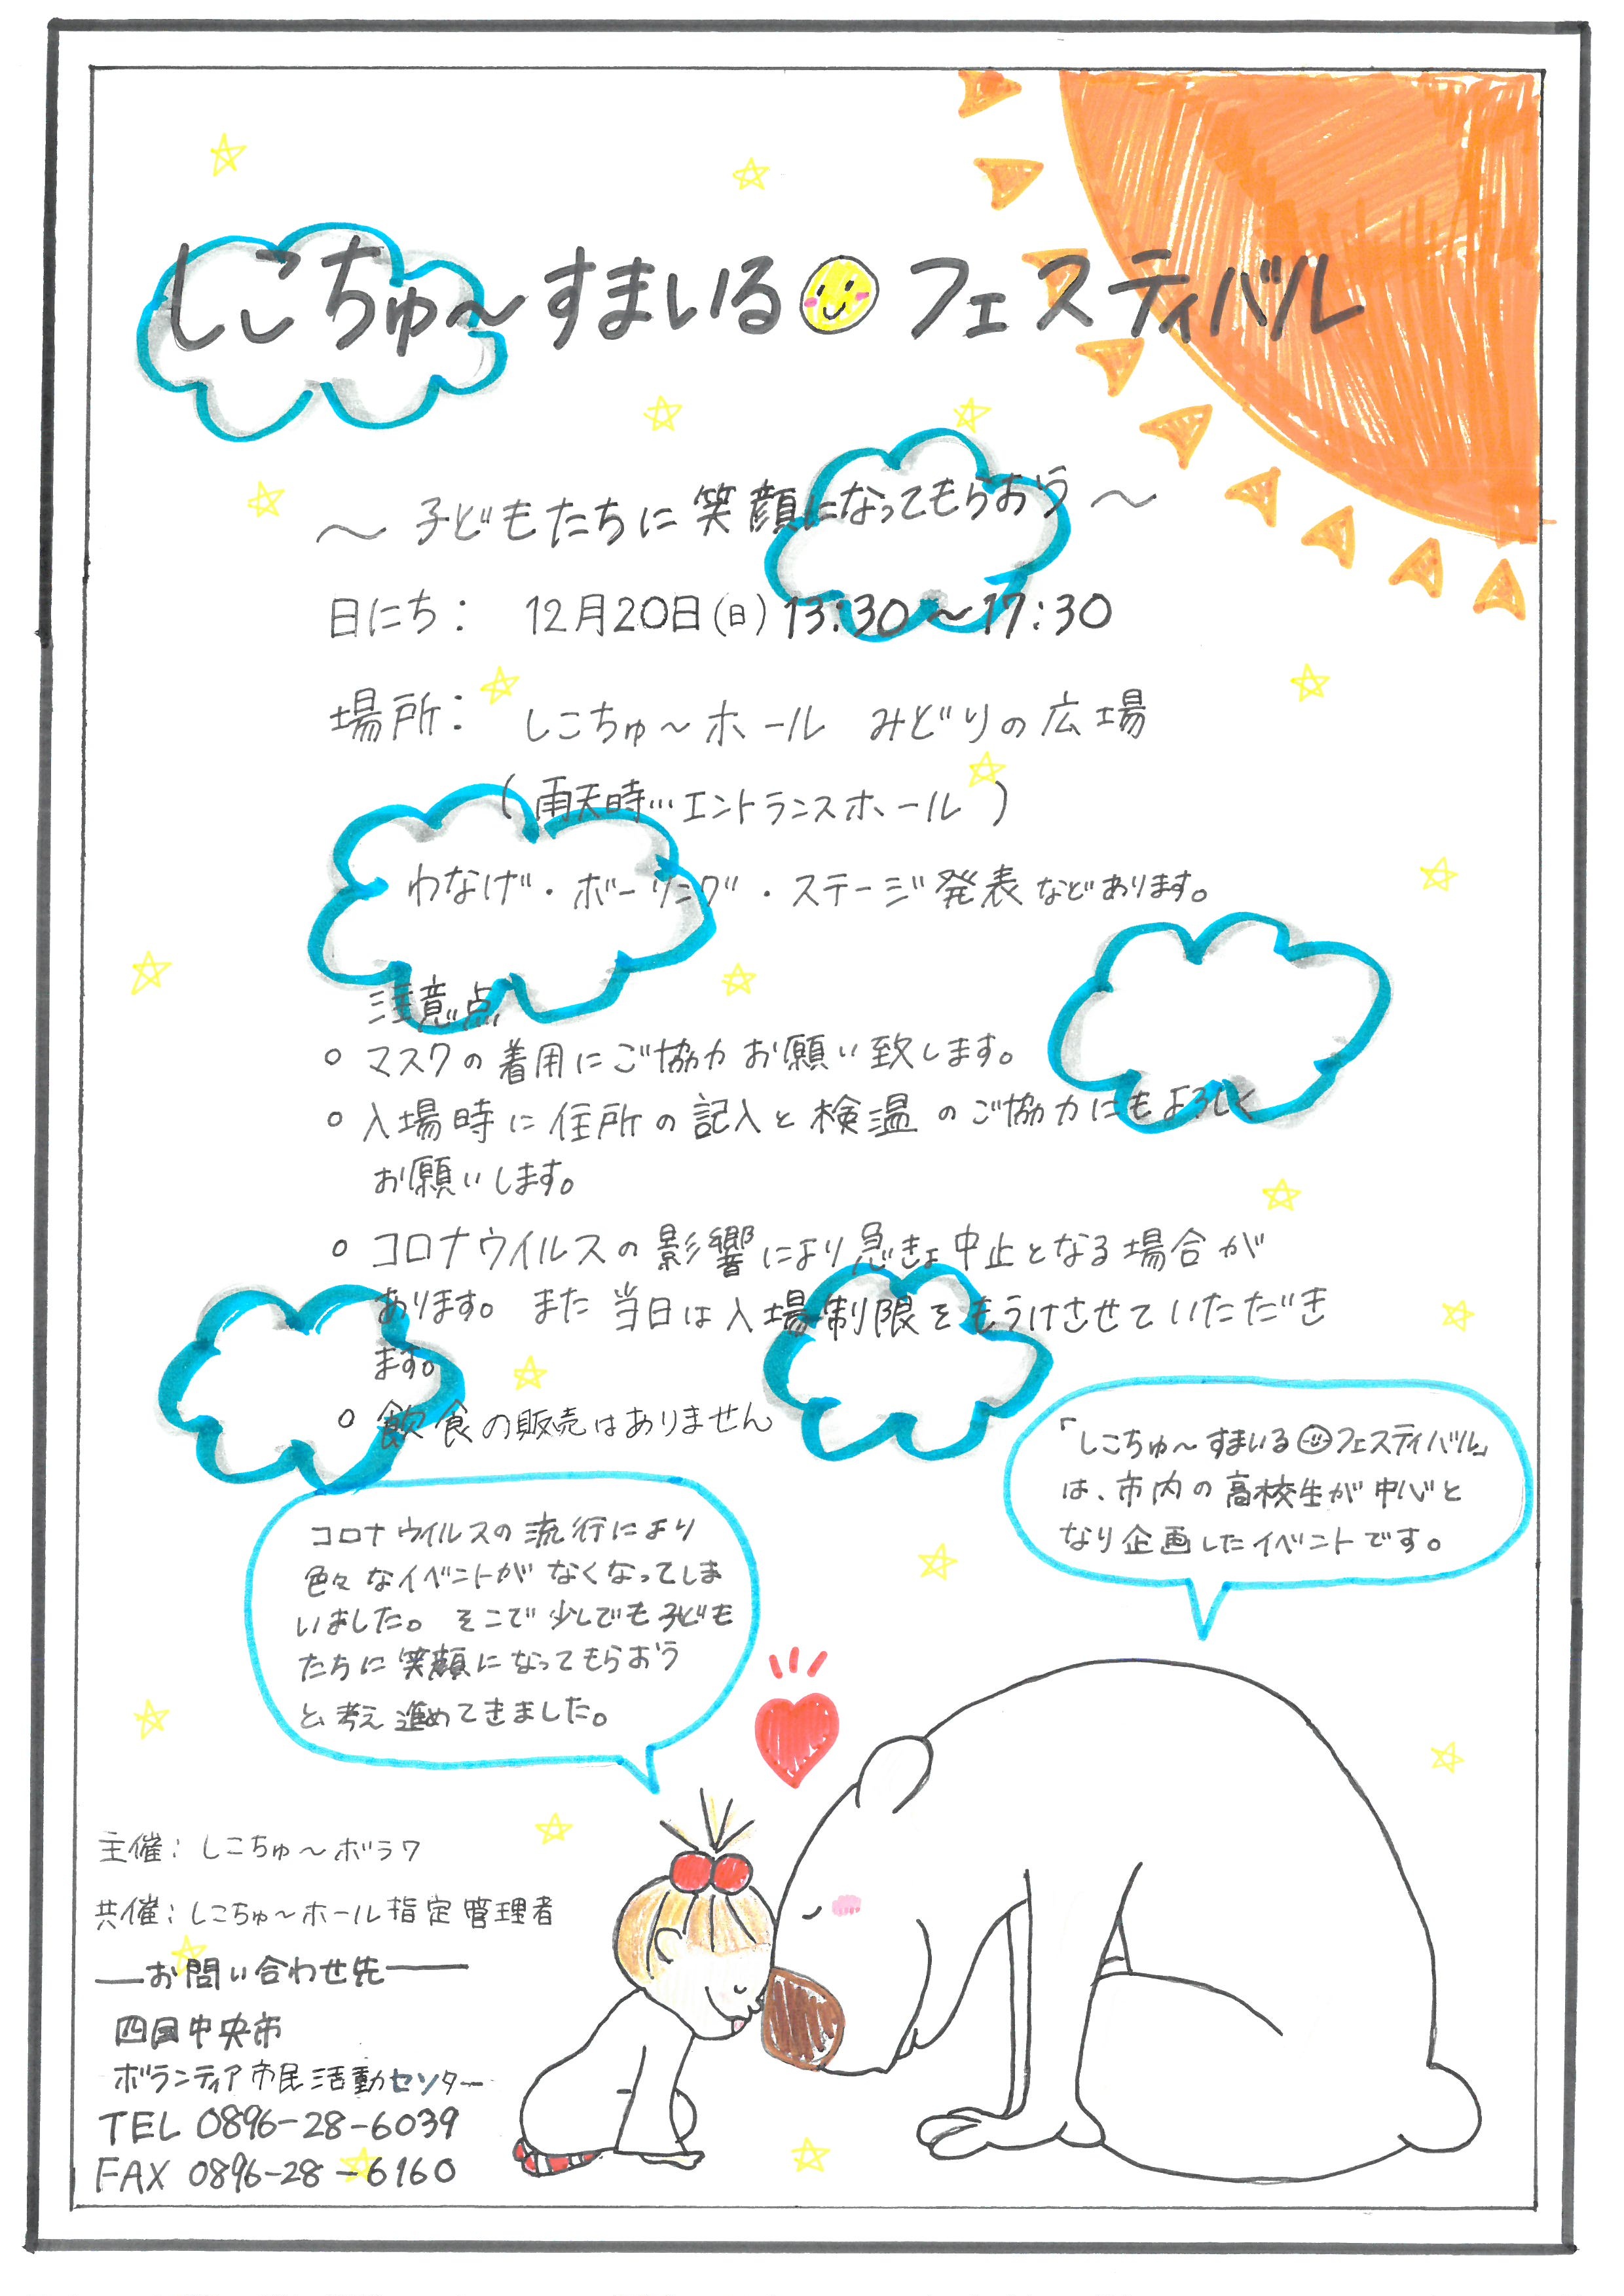 しこちゅ～すまいるフェスティバル
～ 子どもたちに笑顔になってもらおう ～
日にち： 12月20日(日) 13:30～17:30
場所： しこちゅ～ホール みどりの広場
(雨天時…エントランスホール)
わなげ・ボーリング・ステージ発表などあります。
注意点
○ マスクの着用にご協力お願い致します。
○ 入場時に住所の記入と検温のご協力にもよろしく
お願いします。
○ コロナウイルスの影響により急きょ中止となる場合が
あります。また当日は入場制限をもうけさせていただき
ます。
○ 飲食の販売はありません
「しこちゅ～すまいるフェスティバル」
は、市内の高校生が中心と
なり企画したイベントです。
コロナウイルスの流行により
色々なイベントがなくなってしま
いました。そこで少しでも子ども
たちに笑顔になってもらおう
と考え進めてきました。
主催：しこちゅ～ボラワ
共催：しこちゅ～ホール指定管理者
―お問い合わせ先―
四国中央市
ボランティア市民活動センター
TEL 0896-28-6039
FAX 0896-28-6160